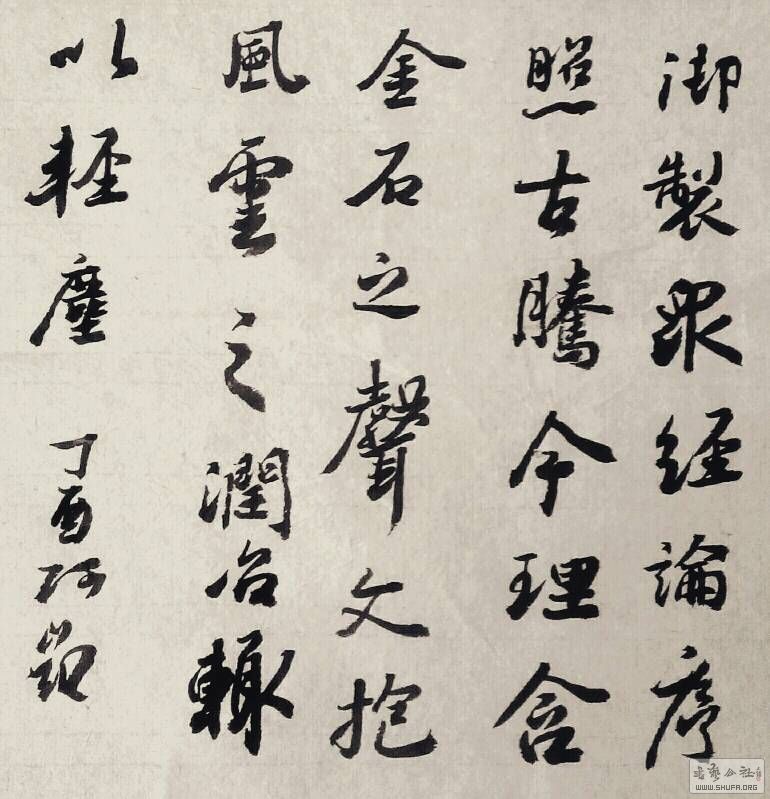 御製眾經論序
照古騰今理含
金石之聲文抱
風雲之潤治輙
以輕塵
丁酉
WWW.SHUFA.ORG